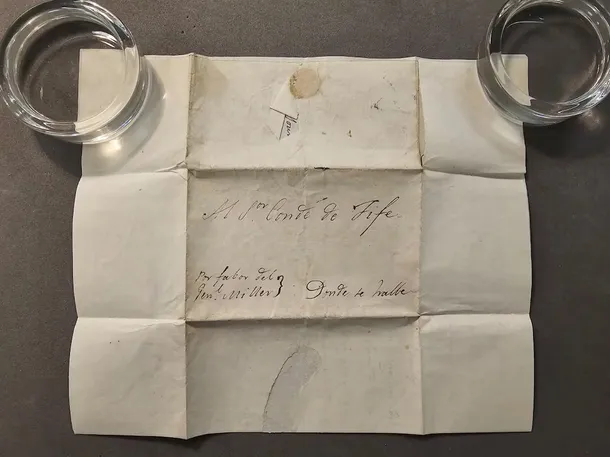 Al S.or Conde de Fife.
Por fabor del
Gen.l Miller}
Donde se halle